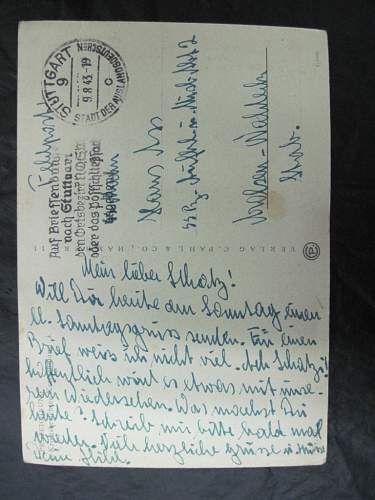 STUTTGART
9
9.8.43-19
c
STADT DER AUSLANDSDEUTSCHEN
Auf Briefsendungen
nach Stuttgart
den Ortsbezirk
oder das Postschließfach
angeben
Feldpost
Hans
Stab.
VERLAG C. PAHL & CO., HAM
Mein lieber Schatz!
Will Dir heute am Sonntag einen
kl. Sonntagsgruss senden. Für einen
Brief weiss ich nicht viel. Ach Schatz!
hoffentlich wird es etwas mit unse-
rem Wiedersehen. Was machst Du
heute? Schreib mir bitte bald mal
wieder. Viele herzliche Grüsse u. Küsse
Deine